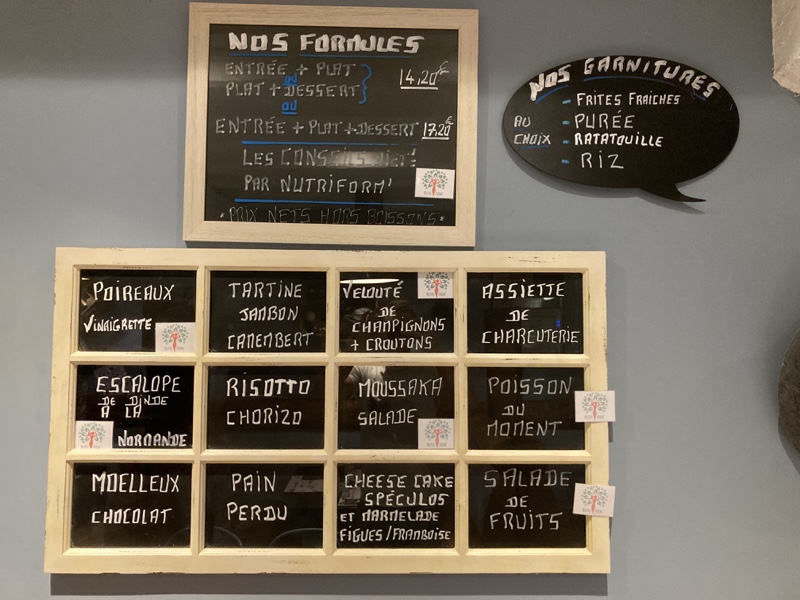 NOS FORMULES
ENTRÉE + PLAT
ou
PLAT + DESSERT
14,20€
ou
ENTRÉE + PLAT + DESSERT 17,20€
LES CONSEILS
PAR NUTRIFORM'
• PRIX NETS HORS BOISSONS •
NOS GARNITURES
AU CHOIX
- FRITES FRAICHES
- PURÉE
- RATATOUILLE
- RIZ
POIREAUX
VINAIGRETTE
TARTINE
JAMBON
CAMEMBERT
VELOUTÉ
DE
CHAMPIGNONS
+ CROUTONS
ASSIETTE
DE
CHARCUTERIE
ESCALOPE
DE DINDE
A LA
NORMANDE
RISOTTO
CHORIZO
MOUSSAKA
SALADE
POISSON
DU
MOMENT
MOELLEUX
CHOCOLAT
PAIN
PERDU
CHEESE CAKE
SPÉCULOS
ET MARMELADE
FIGUES/FRAMBOISE
SALADE
DE
FRUITS